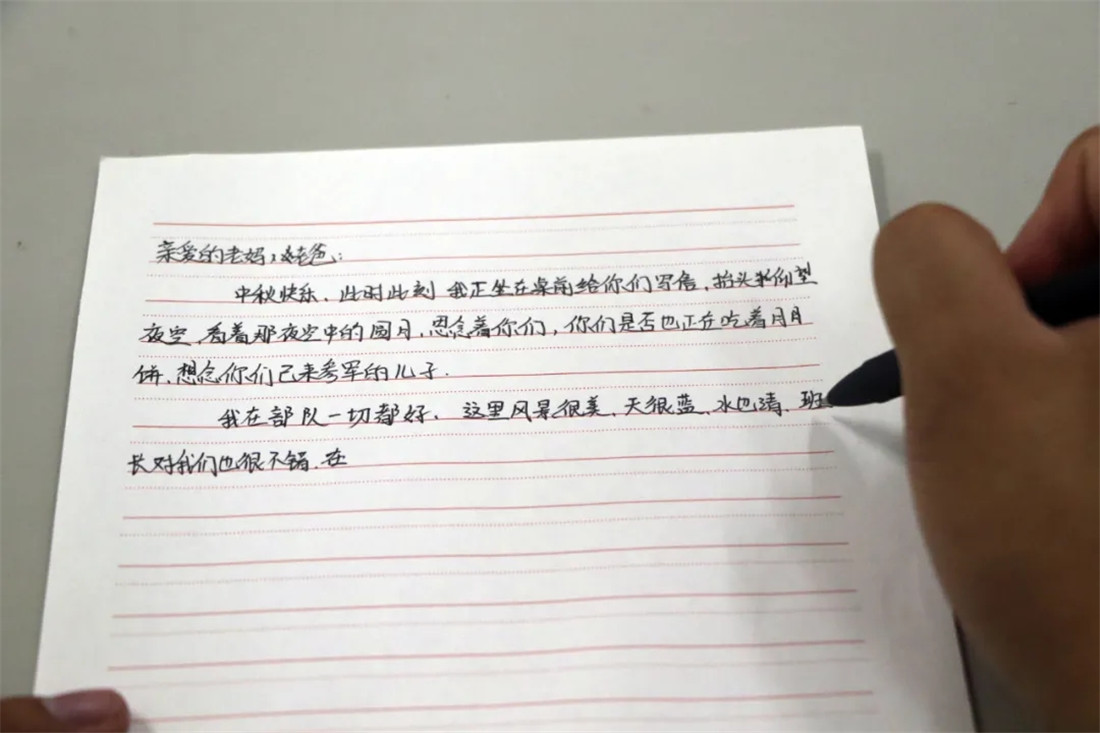 亲爱的老妈,老爸:
中秋快乐,此时此刻 我正坐在桌前给你们写信,抬头
夜空,看着那夜空中的圆月,思念着你们,你们是否也正在吃着月
饼,想念你们已来参军的儿子.
我在部队一切都好, 这里风景很美、天很蓝、水也清、班
长对我们也很不错.在